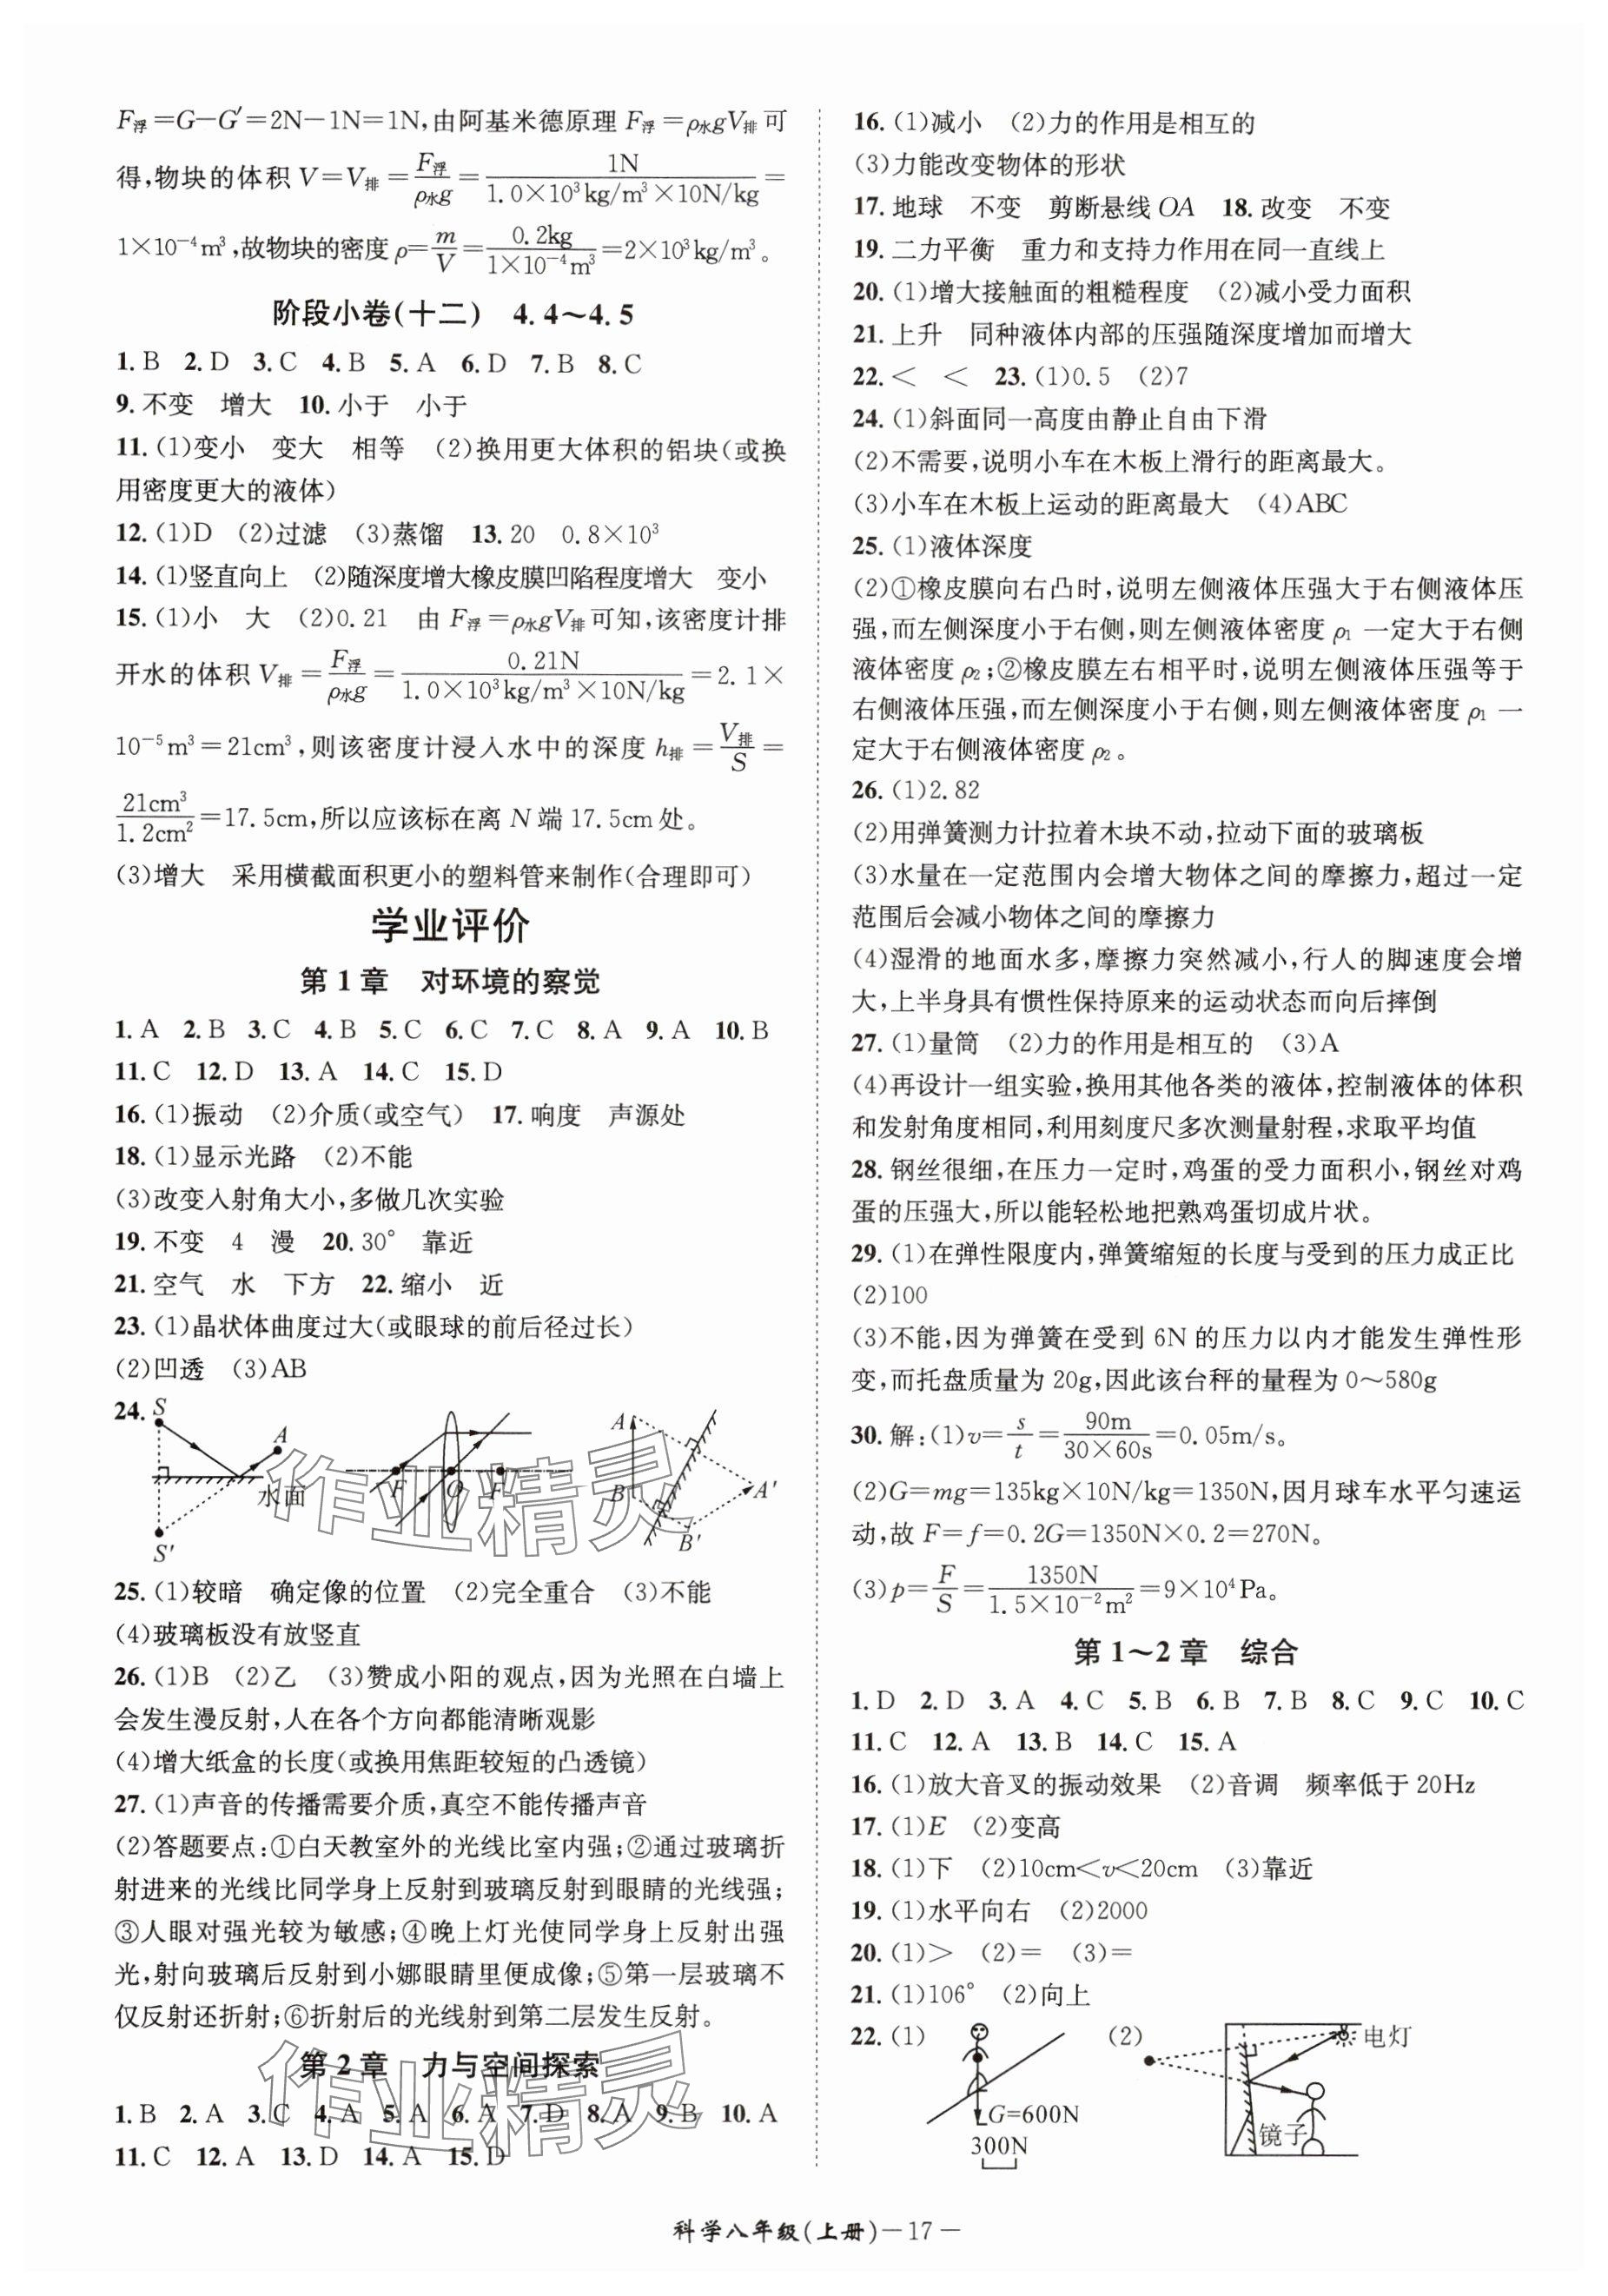 F浮=G-G′=2N-1N=1N,由阿基米德原理 F浮=ρ水gV排可
得,物块的体积 V=V排=F浮/ρ水g=1N/1.0×10³kg/m³×10N/kg=
1×10⁻⁴m³,故物块的密度 ρ=m/V=0.2kg/1×10⁻⁴m³=2×10³kg/m³。
阶段小卷(十二) 4.4~4.5
1. B 2. D 3. C 4. B 5. A 6. D 7. B 8. C
9. 不变 增大 10. 小于 小于
11. (1)变小 变大 相等 (2)换用更大体积的铝块(或换
用密度更大的液体)
12. (1)D (2)过滤 (3)蒸馏 13. 20 0.8×10³
14. (1)竖直向上 (2)随深度增大橡皮膜凹陷程度增大 变小
15. (1)小 大 (2)0.21 由 F浮=ρ水gV排可知,该密度计排
开水的体积 V排=F浮/ρ水g=0.21N/1.0×10³kg/m³×10N/kg=2.1×
10⁻⁵m³=21cm³,则该密度计浸入水中的深度 h排=V排/S=
21cm³/1.2cm²=17.5cm,所以应该标在离 N 端 17.5cm 处。
(3)增大 采用横截面积更小的塑料管来制作(合理即可)
学业评价
第1章 对环境的察觉
1. A 2. B 3. C 4. B 5. C 6. C 7. C 8. A 9. A 10. B
11. C 12. D 13. A 14. C 15. D
16. (1)振动 (2)介质(或空气) 17. 响度 声源处
18. (1)显示光路 (2)不能
(3)改变入射角大小,多做几次实验
19. 不变 4 漫 20. 30° 靠近
21. 空气 水 下方 22. 缩小 近
23. (1)晶状体曲度过大(或眼球的前后径过长)
(2)凹透 (3)AB
24. S A 水面 S′ F O F A B A′ B′
作业精灵
25. (1)较暗 确定像的位置 (2)完全重合 (3)不能
(4)玻璃板没有放竖直
26. (1)B (2)乙 (3)赞成小阳的观点,因为光照在白墙上
会发生漫反射,人在各个方向都能清晰观影
(4)增大纸盒的长度(或换用焦距较短的凸透镜)
27. (1)声音的传播需要介质,真空不能传播声音
(2)答题要点:①白天教室外的光线比室内强;②通过玻璃折
射进来的光线比同学身上反射到玻璃反射到眼睛的光线强;
③人眼对强光较为敏感;④晚上灯光使同学身上反射出强
光,射向玻璃后反射到小娜眼睛里便成像;⑤第一层玻璃不
仅反射还折射;⑥折射后的光线射到第二层发生反射。
第2章 力与空间探索
作业精灵
1. B 2. A 3. C 4. A 5. A 6. A 7. D 8. A 9. B 10. A
11. C 12. A 13. D 14. A 15. D
16. (1)减小 (2)力的作用是相互的
(3)力能改变物体的形状
17. 地球 不变 剪断悬线 OA 18. 改变 不变
19. 二力平衡 重力和支持力作用在同一直线上
20. (1)增大接触面的粗糙程度 (2)减小受力面积
21. 上升 同种液体内部的压强随深度增加而增大
22. < < 23. (1)0.5 (2)7
24. (1)斜面同一高度由静止自由下滑
(2)不需要,说明小车在木板上滑行的距离最大。
(3)小车在木板上运动的距离最大 (4)ABC
25. (1)液体深度
(2)①橡皮膜向右凸时,说明左侧液体压强大于右侧液体压
强,而左侧深度小于右侧,则左侧液体密度 ρ₁ 一定大于右侧
液体密度 ρ₂;②橡皮膜左右相平时,说明左侧液体压强等于
右侧液体压强,而左侧深度小于右侧,则左侧液体密度 ρ₁ 一
定大于右侧液体密度 ρ₂。
26. (1)2.82
(2)用弹簧测力计拉着木块不动,拉动下面的玻璃板
(3)水量在一定范围内会增大物体之间的摩擦力,超过一定
范围后会减小物体之间的摩擦力
(4)湿滑的地面水多,摩擦力突然减小,行人的脚速度会增
大,上半身具有惯性保持原来的运动状态而向后摔倒
27. (1)量筒 (2)力的作用是相互的 (3)A
(4)再设计一组实验,换用其他各类的液体,控制液体的体积
和发射角度相同,利用刻度尺多次测量射程,求取平均值
28. 钢丝很细,在压力一定时,鸡蛋的受力面积小,钢丝对鸡
蛋的压强大,所以能轻松地把熟鸡蛋切成片状。
29. (1)在弹性限度内,弹簧缩短的长度与受到的压力成正比
(2)100
(3)不能,因为弹簧在受到 6N 的压力以内才能发生弹性形
变,而托盘质量为 20g,因此该台秤的量程为 0~580g
30. 解:(1)v=s/t=90m/30×60s=0.05m/s。
(2)G=mg=135kg×10N/kg=1350N,因月球车水平匀速运
动,故 F=f=0.2G=1350N×0.2=270N。
(3)p=F/S=1350N/1.5×10⁻²m²=9×10⁴Pa。
第1~2章 综合
1. D 2. D 3. A 4. C 5. B 6. B 7. B 8. C 9. C 10. C
11. C 12. A 13. B 14. C 15. A
16. (1)放大音叉的振动效果 (2)音调 频率低于 20Hz
17. (1)E (2)变高
18. (1)下 (2)10cm<v<20cm (3)靠近
19. (1)水平向右 (2)2000
20. (1)> (2)= (3)=
21. (1)106° (2)向上
22. (1) G=600N 300N (2) 电灯 镜子
科学八年级(上册)—17—